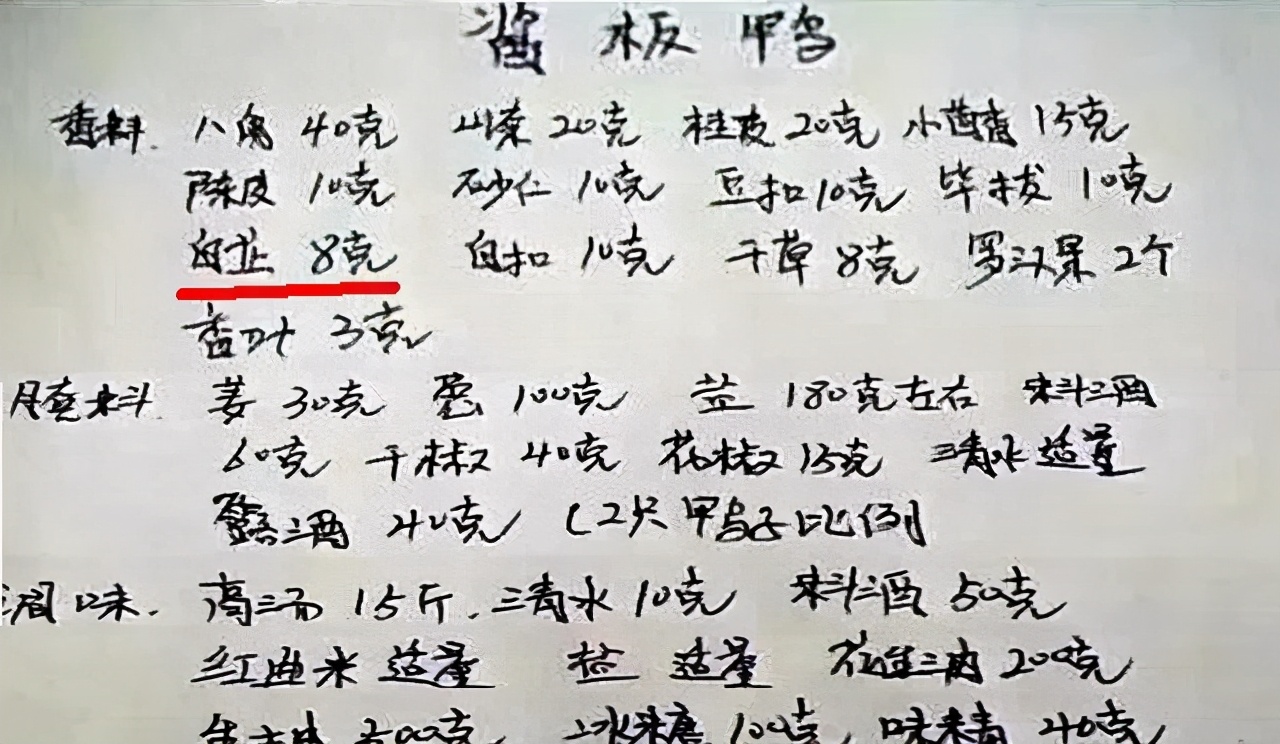 酱板鸭
香料. 八角 40克 山柰 20克 桂皮 20克 小茴香 15克
陈皮 10克 砂仁 10克 豆扣 10克 毕拔 10克
白芷 8克 白扣 10克 干草 8克 罗汉果 2个
香叶 3克
腌料 姜 30克 葱 100克 盐 180克左右 料酒
60克 干椒 40克 花椒 15克 清水 适量
露酒 40克 (2只鸭子比例
调味. 高汤 15斤. 清水 10克 料酒 50克
红曲米 适量 盐 适量 花生酱 200克
300克 冰糖 100克 味精 40克